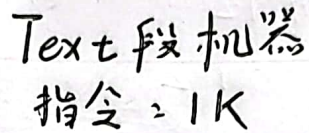 Text段机器
指令：1K